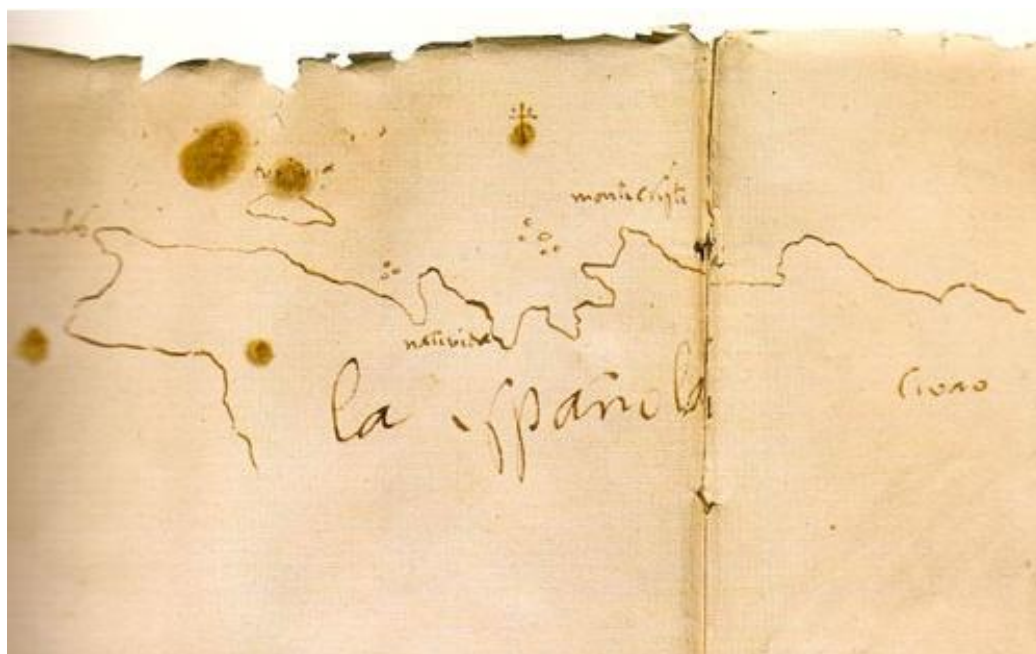 monte cristi
natiuidad
la española
Civao